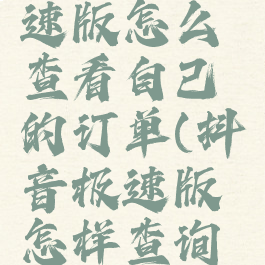 速版怎么
查看自己
的订单(抖
音极速版
怎样查询